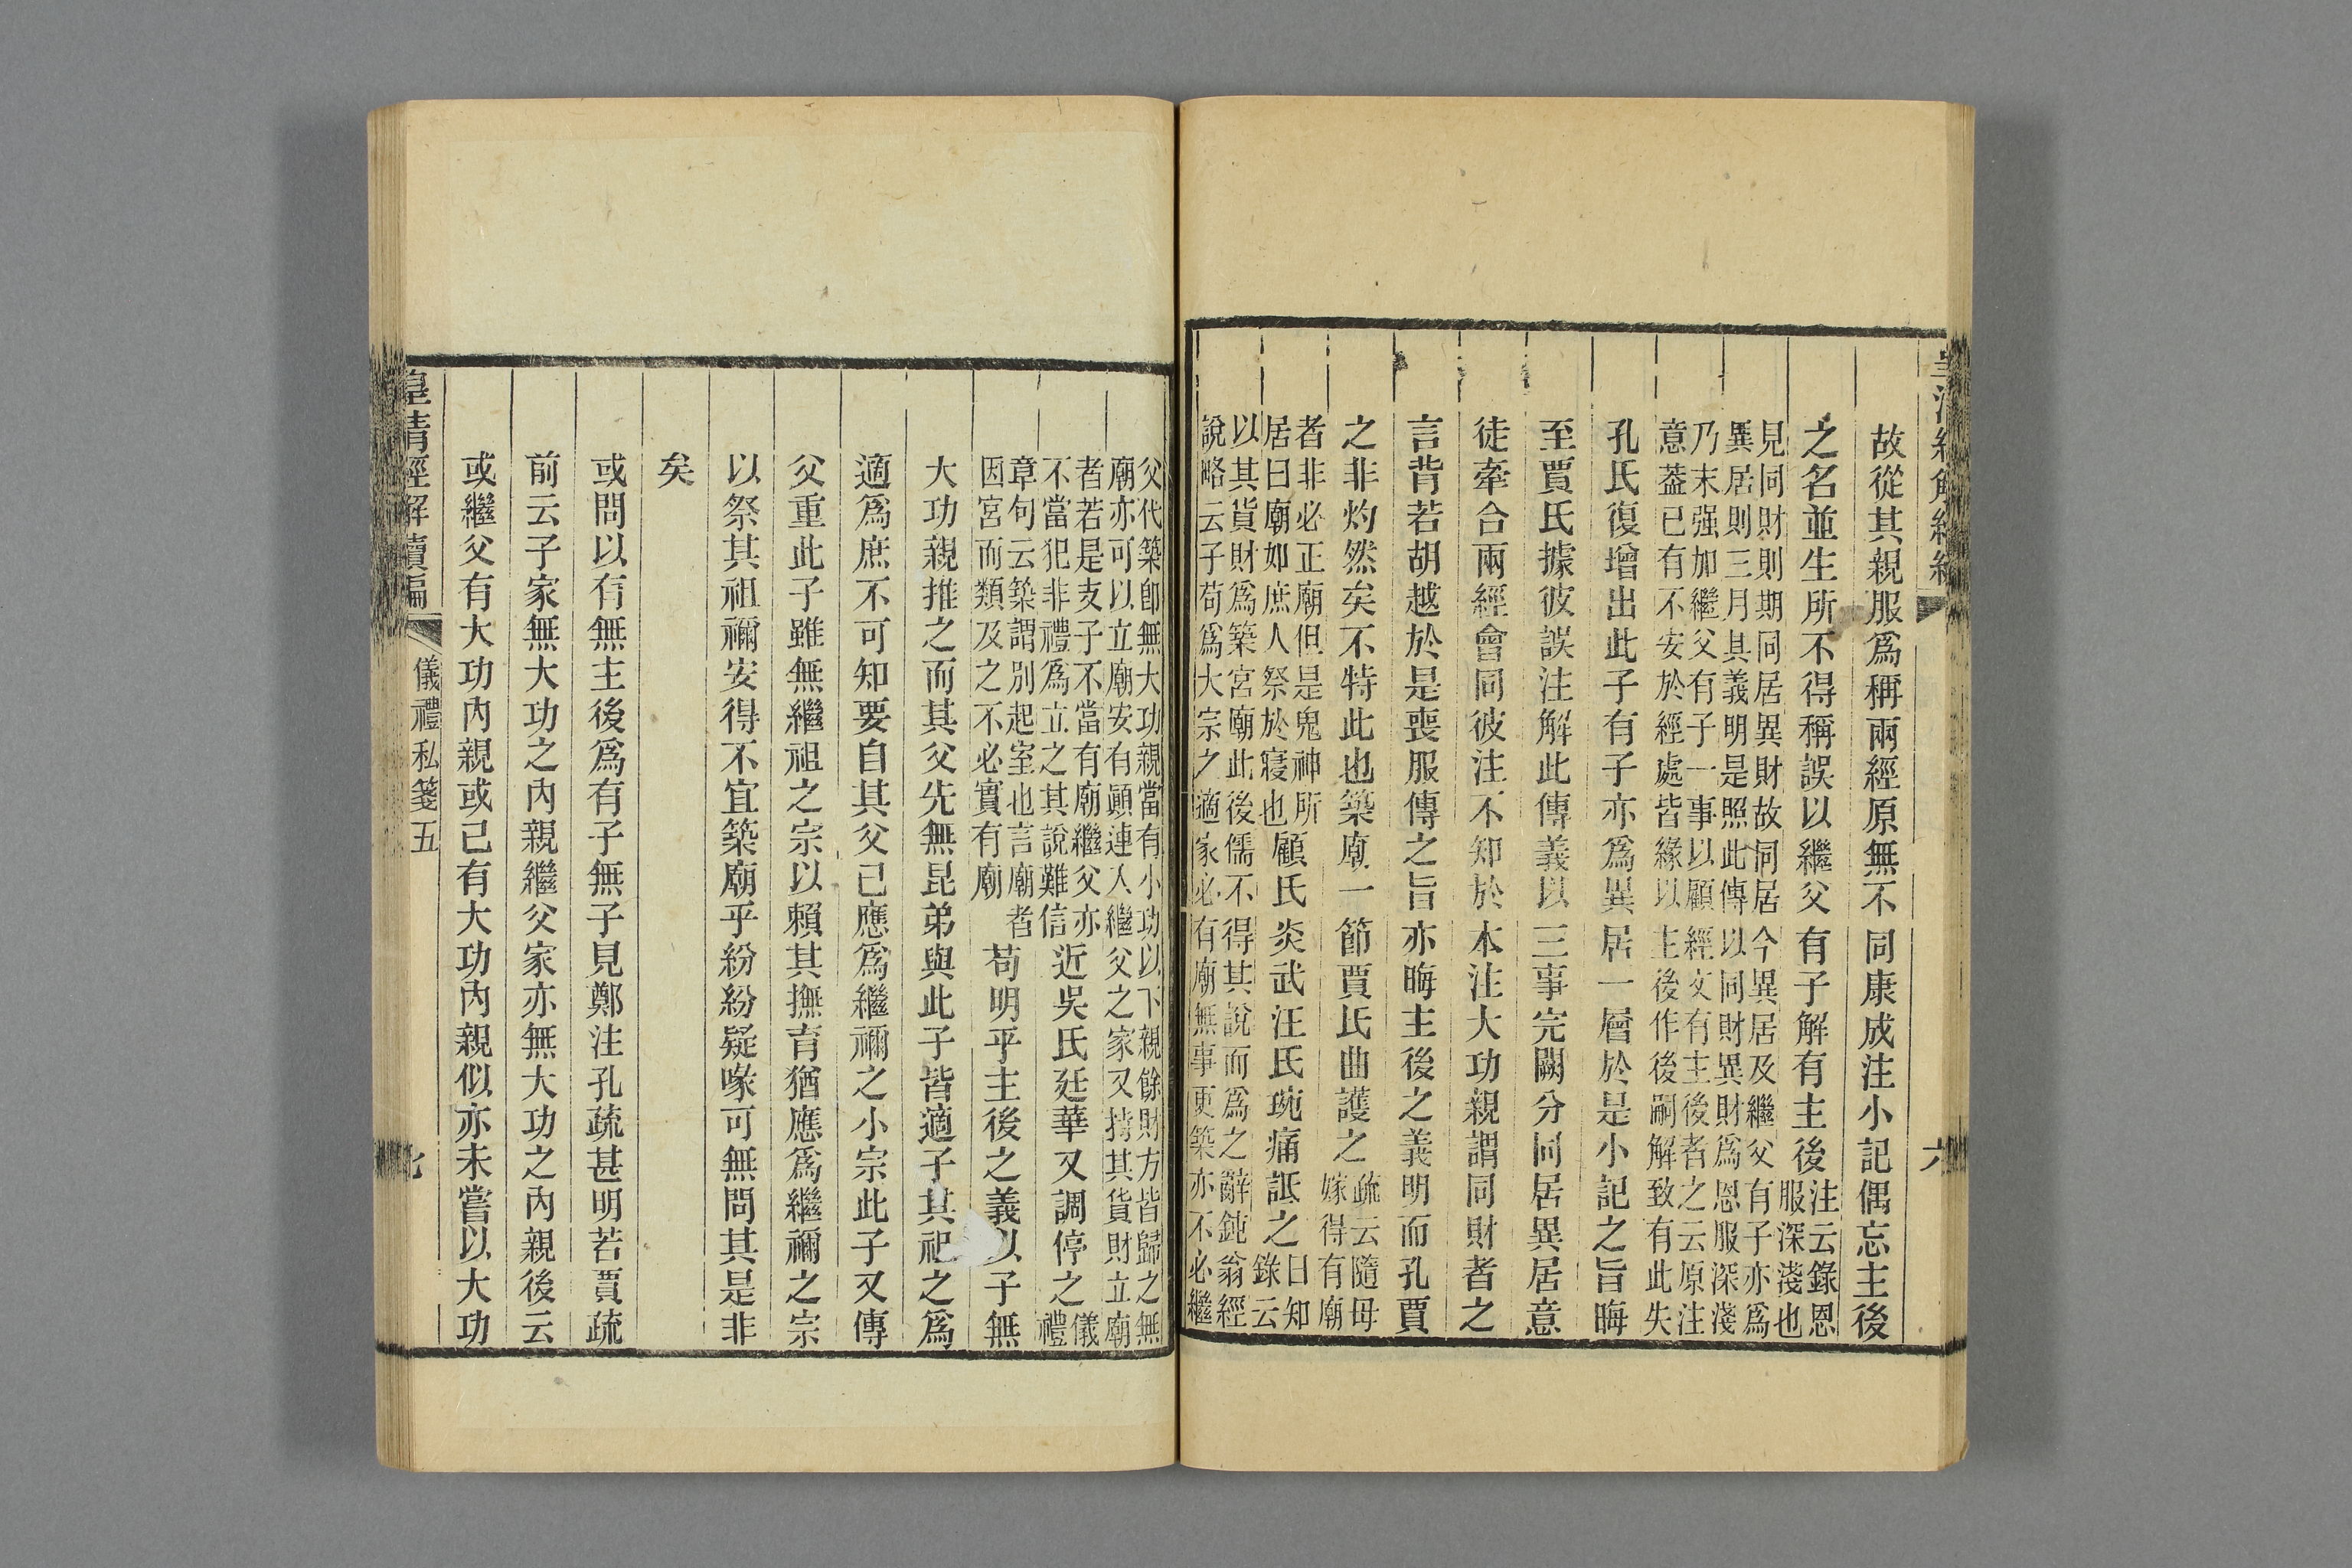 故從其親服爲稱兩經原無不同康成注小記偶忘主後
之名並生所不得稱誤以繼父有子解有主後注云錄恩
服深淺也
見同財則期同居異財故同居今異居及繼父有子亦爲
異居則三月其義明是照此傳以同財異財爲恩服深淺
乃末强加繼父有子一事以顧經文有主後者之云原注
意葢已有不安於經處皆緣以主後作後嗣解致有此失
孔氏復增出此子有子亦爲異居一層於是小記之旨晦
至賈氏據彼誤注解此傳義以三事完闕分同居異居意
徒牽合兩經會同彼注不知於本注大功親謂同財者之
言背若胡越於是喪服傳之旨亦晦主後之義明而孔賈
之非灼然矣不特此也築廟一節賈氏曲護之疏云隨母
嫁得有廟
者非必正廟但是鬼神所
居曰廟如庶人祭於寢也顧氏炎武汪氏琬痛詆之日知
錄云
以其貨財爲築宮廟此後儒不得其說而爲之辭鈍翁經
說略云子苟爲大宗之適家必有廟無事更築亦不必繼
父代築卽無大功親當有小功以下親餘財方皆歸之無
廟亦可以立廟安有顚連入繼父之家又揹其貨財立廟
者若是支子不當有廟繼父亦
不當犯非禮爲立之其說難信近吳氏廷華又調停之儀
禮
章句云築謂別起室也言廟者
因宮而類及之不必實有廟苟明乎主後之義以子無
大功親推之而其父先無昆弟與此子皆適子其祀之爲
適爲庶不可知要自其父己應爲繼禰之小宗此子又傳
父重此子雖無繼祖之宗以賴其撫育猶應爲繼禰之宗
以祭其祖禰安得不宜築廟乎紛紛疑喙可無問其是非
矣
或問以有無主後爲有子無子見鄭注孔疏甚明若賈疏
前云子家無大功之內親繼父家亦無大功之內親後云
或繼父有大功內親或己有大功內親似亦未嘗以大功
皇清經解續編
儀禮私箋五